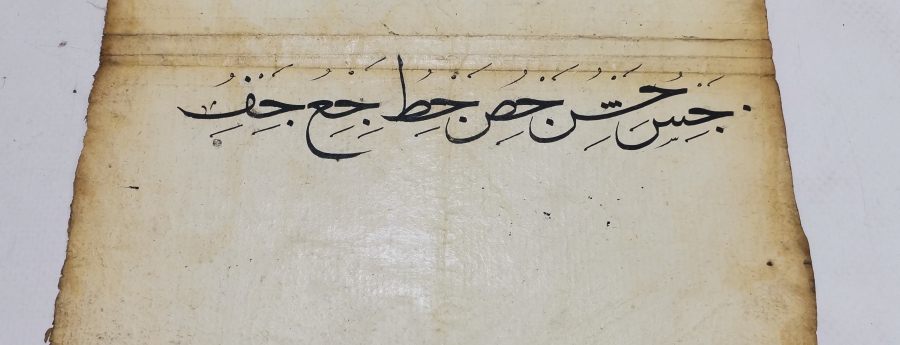 جس حش حص حط جع حف